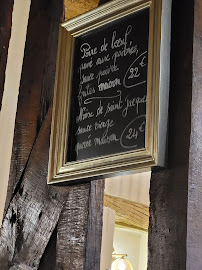 Poire de bœuf
poné aux poivres,
sauce poivre
frites maison 22€
Noix de saint jacques
sauce vierge
purée maison 24€